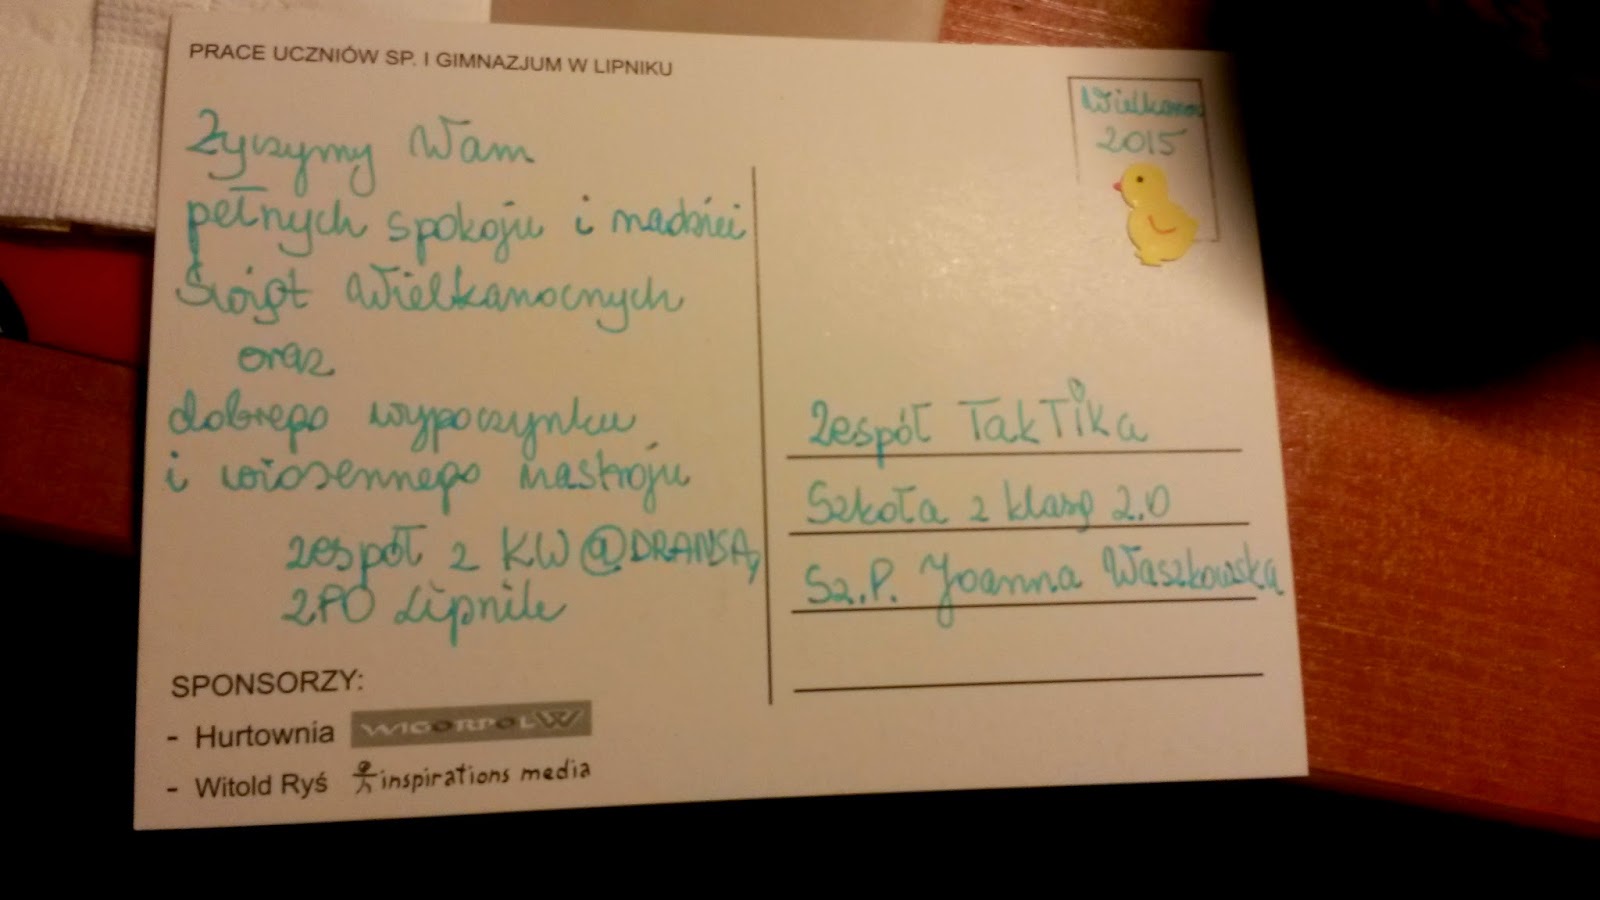 PRACE UCZNIÓW SP. I GIMNAZJUM W LIPNIKU
Życzymy Wam
pełnych spokoju i nadziei
Świąt Wielkanocnych
oraz
dobrego wypoczynku
i wiosennego nastroju
zespół z KW @DRANSĄ
ZPO Lipnik
SPONSORZY:
- Hurtownia WIGORPOL W
- Witold Ryś inspirations media
Wielkanoc
2015
Zespół TakTika
Szkoła z klasą 2.0
Sz.P. Joanna Waszkowska